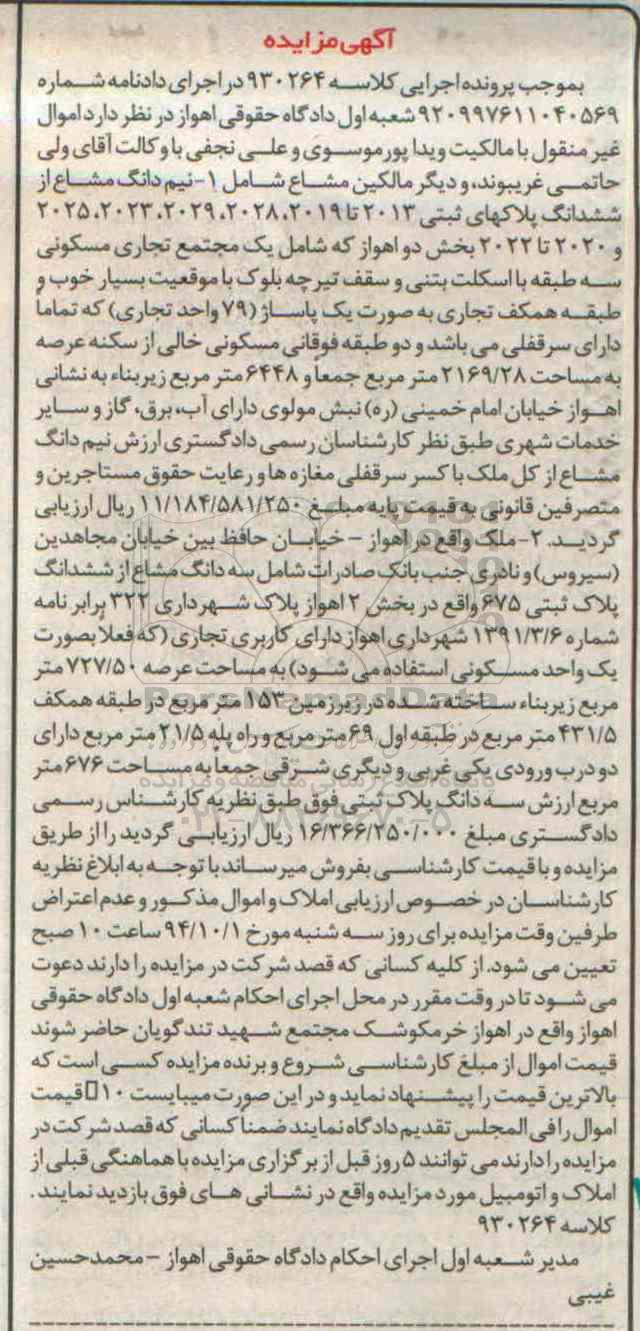 آگهی مزایده
بموجب پرونده اجرایی کلاسه ۹۳۰۲۶۴ در اجرای دادنامه شماره
۹۲۰۹۹۷۶۱۱۰۴۰۵۶۹ شعبه اول دادگاه حقوقی اهواز در نظر دارد اموال
غیر منقول با مالکیت ویدا پورموسوی و علی نجفی با وکالت آقای ولی
حاتمی غریبوند، و دیگر مالکین مشاع شامل ۱-نیم دانگ مشاع از
ششدانگ پلاکهای ثبتی ۲۰۱۳ تا ۲۰۱۹، ۲۰۲۸، ۲۰۲۹، ۲۰۲۳، ۲۰۲۵
و ۲۰۲۰ تا ۲۰۲۲ بخش دو اهواز که شامل یک مجتمع تجاری مسکونی
سه طبقه با اسکلت بتنی و سقف تیرچه بلوک با موقعیت بسیار خوب و
طبقه همکف تجاری به صورت یک پاساژ (۷۹ واحد تجاری) که تماماً
دارای سرقفلی می باشد و دو طبقه فوقانی مسکونی خالی از سکنه عرصه
به مساحت ۲۱۶۹/۲۸ متر مربع جمعاً و ۶۴۴۸ متر مربع زیربناء به نشانی
اهواز خیابان امام خمینی (ره) نبش مولوی دارای آب، برق، گاز و سایر
خدمات شهری طبق نظر کارشناسان رسمی دادگستری ارزش نیم دانگ
مشاع از کل ملک با کسر سرقفلی مغازه ها و رعایت حقوق مستاجرین و
متصرفین قانونی به قیمت پایه مبلغ ۱۱/۱۸۴/۵۸۱/۲۵۰ ریال ارزیابی
گردید. ۲-ملک واقع در اهواز - خیابان حافظ بین خیابان مجاهدین
(سیروس) و نادری جنب بانک صادرات شامل سه دانگ مشاع از ششدانگ
پلاک ثبتی ۶۷۵ واقع در بخش ۲ اهواز پلاک شهرداری ۳۲۲ برابر نامه
شماره ۱۳۹۱/۳/۶ شهرداری اهواز دارای کاربری تجاری (که فعلا بصورت
یک واحد مسکونی استفاده می شود) به مساحت عرصه ۷۲۷/۵۰ متر
مربع زیربناء ساخته شده در زیرزمین ۱۵۳ متر مربع در طبقه همکف
۴۳۱/۵ متر مربع در طبقه اول ۶۹ متر مربع و راه پله ۲۱/۵ متر مربع دارای
دو درب ورودی یکی غربی و دیگری شرقی جمعاً به مساحت ۶۷۶ متر
مربع ارزش سه دانگ پلاک ثبتی فوق طبق نظریه کارشناس رسمی
دادگستری مبلغ ۱۶/۳۶۶/۲۵۰/۰۰۰ ریال ارزیابی گردید را از طریق
مزایده و با قیمت کارشناسی بفروش میرساند با توجه به ابلاغ نظریه
کارشناسان در خصوص ارزیابی املاک و اموال مذکور و عدم اعتراض
طرفین وقت مزایده برای روز سه شنبه مورخ ۹۴/۱۰/۱ ساعت ۱۰ صبح
تعیین می شود. از کلیه کسانی که قصد شرکت در مزایده را دارند دعوت
می شود تا در وقت مقرر در محل اجرای احکام شعبه اول دادگاه حقوقی
اهواز واقع در اهواز خرمکوشک مجتمع شهید تندگویان حاضر شوند
قیمت اموال از مبلغ کارشناسی شروع و برنده مزایده کسی است که
بالاترین قیمت را پیشنهاد نماید و در این صورت میبایست ۱۰ قیمت
اموال را فی المجلس تقدیم دادگاه نمایند ضمناً کسانی که قصد شرکت در
مزایده را دارند می توانند ۵ روز قبل از برگزاری مزایده با هماهنگی قبلی از
املاک و اتومبیل مورد مزایده واقع در نشانی های فوق بازدید نمایند.
کلاسه ۹۳۰۲۶۴
مدیر شعبه اول اجرای احکام دادگاه حقوقی اهواز - محمدحسین
غیبی
ParsNamadData